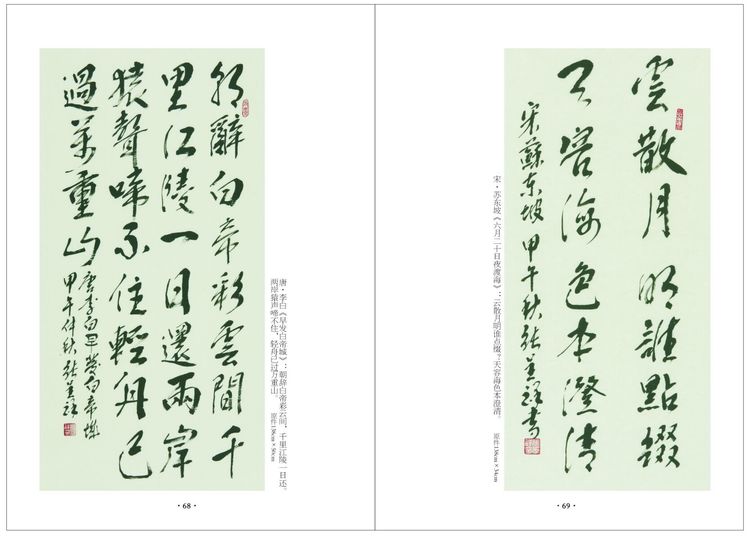 朝辭白帝彩雲間千
里江陵一日還兩岸
猿聲啼不住輕舟已
過萬重山
唐李白早發白帝城
甲午仲秋張
唐·李白《早发白帝城》：朝辞白帝彩云间，千里江陵一日还。
两岸猿声啼不住，轻舟已过万重山。 原件138cm×50cm
·68·
雲散月明誰點綴
天容海色本澄清
宋蘇東坡 甲午秋張 書
宋·苏东坡《六月二十日夜渡海》：云散月明谁点缀？天容海色本澄清。 原件138cm×34cm
·69·